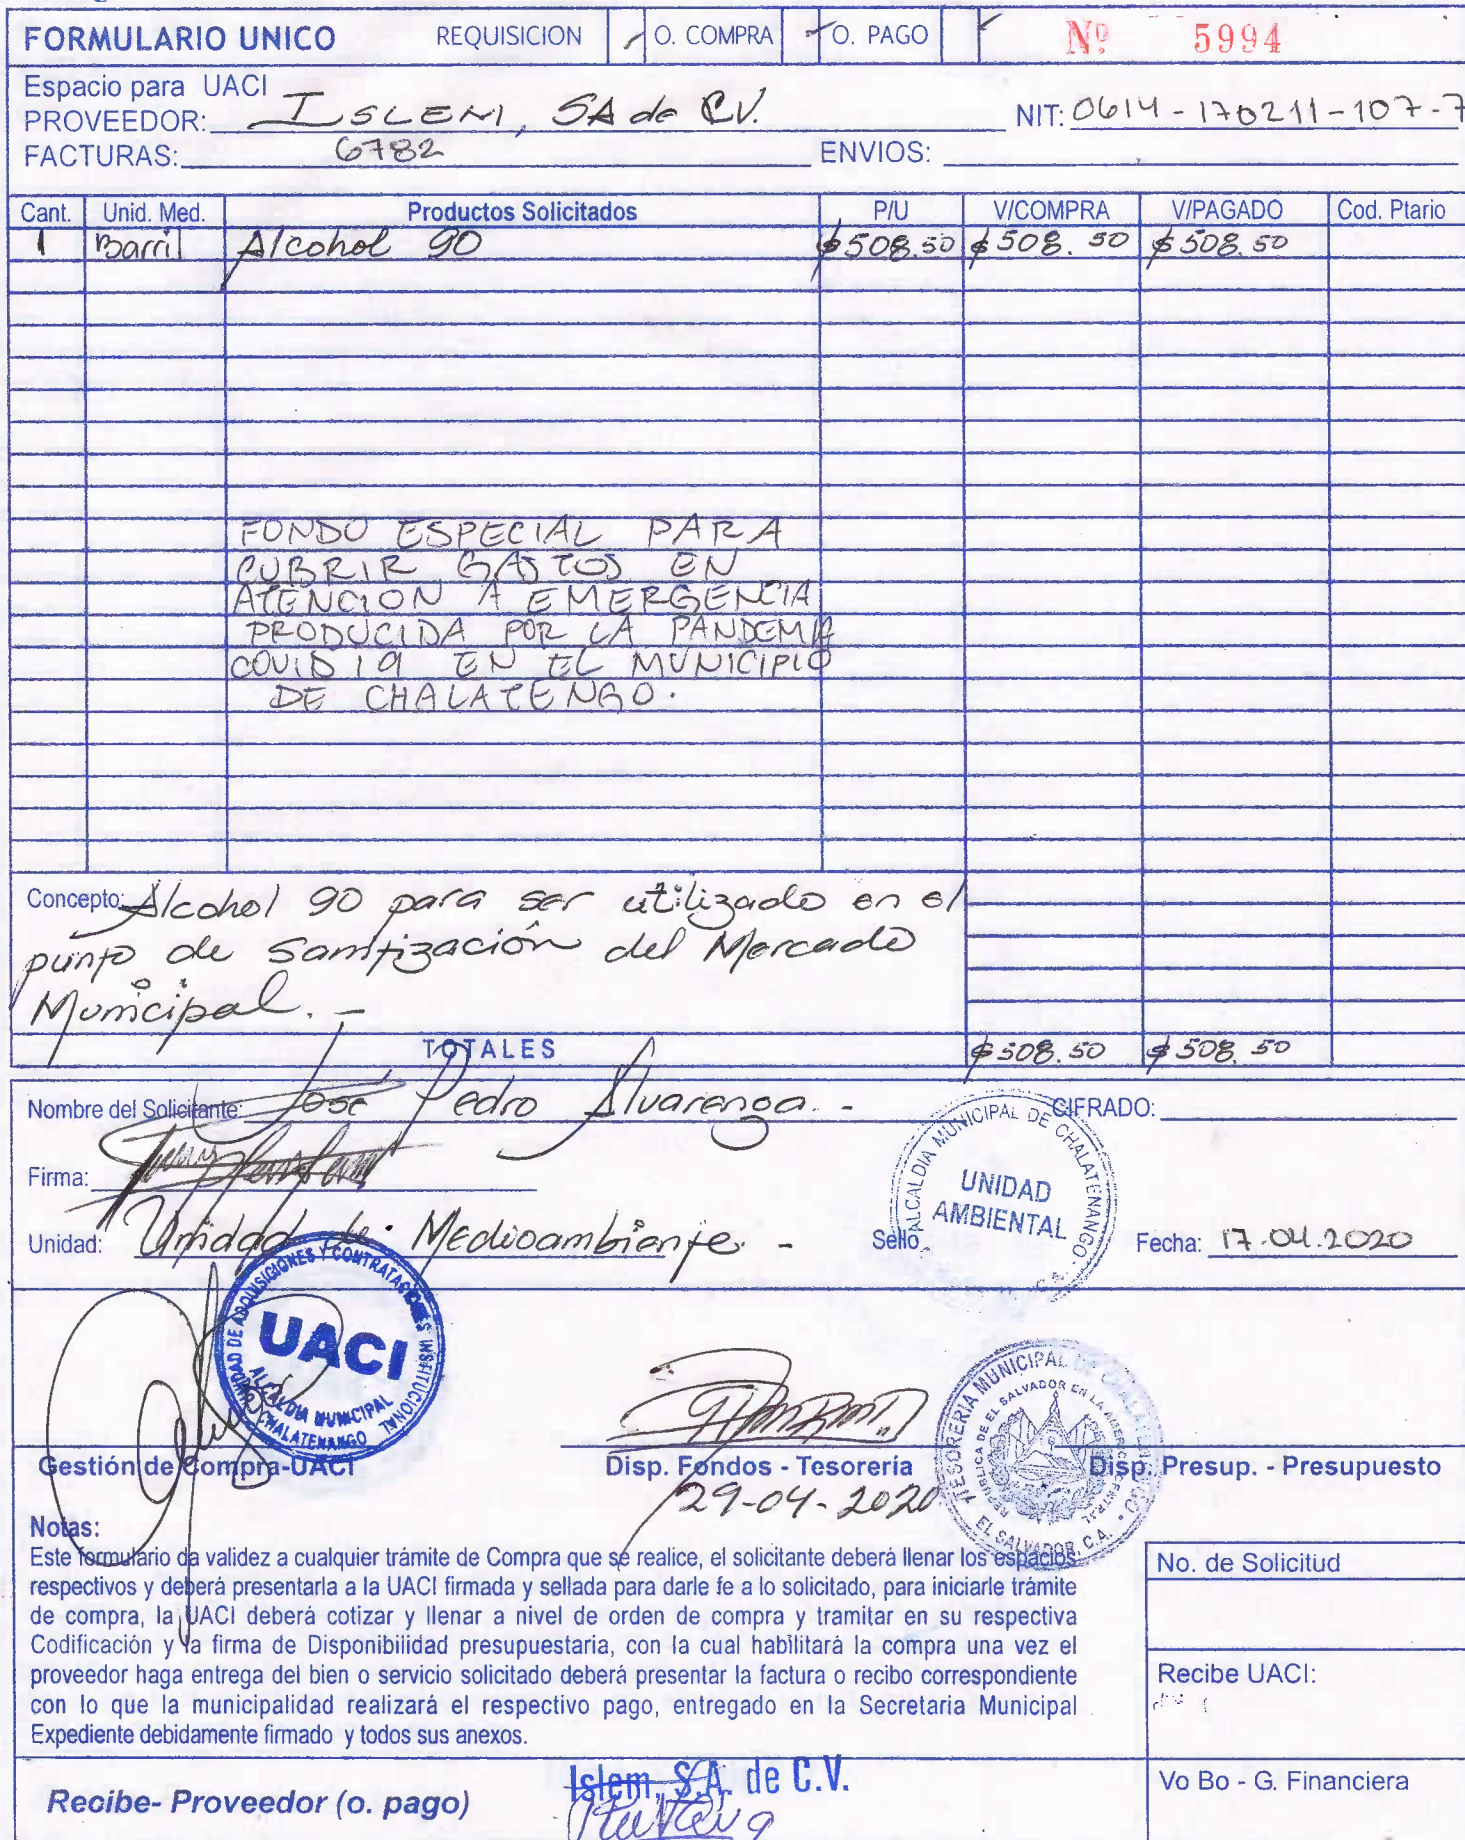 FORMULARIO UNICO REQUISICION O. COMPRA O. PAGO Nº 5994
Espacio para UACI
PROVEEDOR: ISLEM, SA de C.V. NIT: 0614-170211-107-7
FACTURAS: 6782 ENVIOS:
Cant. Unid. Med. Productos Solicitados P/U V/COMPRA V/PAGADO Cod. Ptario
1 Barril Alcohol 90 $508.50 $508.50 $508.50
FONDO ESPECIAL PARA
CUBRIR GASTOS EN
ATENCION A EMERGENCIA
PRODUCIDA POR LA PANDEMIA
COVID 19 EN EL MUNICIPIO
DE CHALATENGO.
Concepto: Alcohol 90 para ser utilizado en el
punto de Sanitización del Mercado
Municipal. -
TOTALES $508.50 $508.50
Nombre del Solicitante: Jose Pedro Alvarenga. - CIFRADO:
ALCALDIA MUNICIPAL DE CHALATENANGO
UNIDAD
AMBIENTAL
Firma:
Unidad: Unidad de Medioambiente. - Sello Fecha: 17.04.2020
UNIDAD DE ADQUISICIONES Y CONTRATACIONES INSTITUCIONAL
UACI
ALCALDIA MUNICIPAL
CHALATENANGO
TESORERIA MUNICIPAL DE CHALATENANGO
REPUBLICA DE EL SALVADOR EN LA AMERICA CENTRAL
EL SALVADOR, C.A.
Gestión de Compra-UACI Disp. Fondos - Tesorería Disp. Presup. - Presupuesto
29-04-2020
Notas:
Este formulario da validez a cualquier trámite de Compra que se realice, el solicitante deberá llenar los espacios
respectivos y deberá presentarla a la UACI firmada y sellada para darle fe a lo solicitado, para iniciarle trámite
de compra, la UACI deberá cotizar y llenar a nivel de orden de compra y tramitar en su respectiva
Codificación y la firma de Disponibilidad presupuestaria, con la cual habilitará la compra una vez el
proveedor haga entrega del bien o servicio solicitado deberá presentar la factura o recibo correspondiente
con lo que la municipalidad realizará el respectivo pago, entregado en la Secretaria Municipal
Expediente debidamente firmado y todos sus anexos.
No. de Solicitud
Recibe UACI:
Vo Bo - G. Financiera
Recibe- Proveedor (o. pago) Islem, S.A. de C.V.